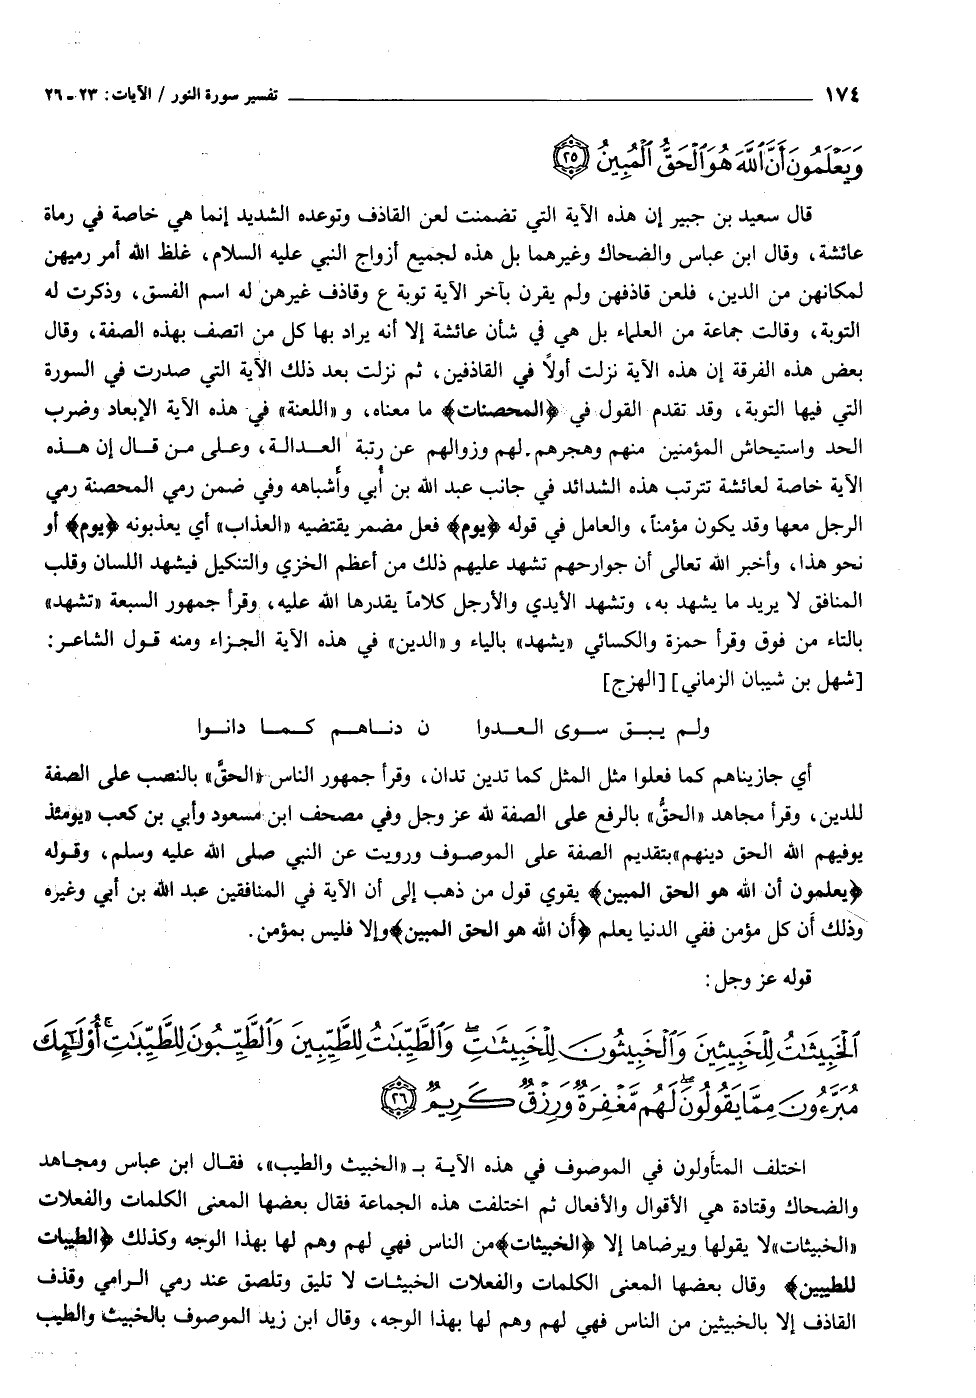 ١٧٤ ــــــــــ تفسير سورة النور / الآيات: ٢٣ - ٢٦
وَيَعْلَمُونَ أَنَّ اللَّهَ هُوَ الْحَقُّ الْمُبِينُ ٢٥
قال سعيد بن جبير إن هذه الآية التي تضمنت لعن القاذف وتوعده الشديد إنما هي خاصة في رماة
عائشة، وقال ابن عباس والضحاك وغيرهما بل هذه لجميع أزواج النبي عليه السلام، غلظ الله أمر رميهن
لمكانهن من الدين، فلعن قاذفهن ولم يقرن بآخر الآية توبة ع وقاذف غيرهن له اسم الفسق، وذكرت له
التوبة، وقالت جماعة من العلماء بل هي في شأن عائشة إلا أنه يراد بها كل من اتصف بهذه الصفة، وقال
بعض هذه الفرقة إن هذه الآية نزلت أولاً في القاذفين، ثم نزلت بعد ذلك الآية التي صدرت في السورة
التي فيها التوبة، وقد تقدم القول في ﴿المحصنات﴾ ما معناه، و «اللعنة» في هذه الآية الإبعاد وضرب
الحد واستيحاش المؤمنين منهم وهجرهم لهم وزوالهم عن رتبة العدالة، وعلى من قال إن هذه
الآية خاصة لعائشة تترتب هذه الشدائد في جانب عبد الله بن أُبي وأشباهه وفي ضمن رمي المحصنة رمي
الرجل معها وقد يكون مؤمناً، والعامل في قوله ﴿يوم﴾ فعل مضمر يقتضيه «العذاب» أي يعذبونه ﴿يوم﴾ أو
نحو هذا، وأخبر الله تعالى أن جوارحهم تشهد عليهم ذلك من أعظم الخزي والتنكيل فيشهد اللسان وقلب
المنافق لا يريد ما يشهد به، وتشهد الأيدي والأرجل كلاماً يقدرها الله عليه، وقرأ جمهور السبعة «تشهد»
بالتاء من فوق وقرأ حمزة والكسائي «يشهد» بالياء و «الدين» في هذه الآية الجزاء ومنه قول الشاعر:
[شهل بن شيبان الزماني] [الهزج]
ولم يبق سوى العدوا ن دناهم كما دانوا
أي جازيناهم كما فعلوا مثل المثل كما تدين تدان، وقرأ جمهور الناس «الحقَّ» بالنصب على الصفة
للدين، وقرأ مجاهد «الحقُّ» بالرفع على الصفة لله عز وجل وفي مصحف ابن مسعود وأبي بن كعب «يومئذ
يوفيهم الله الحق دينهم»بتقديم الصفة على الموصوف ورويت عن النبي صلى الله عليه وسلم، وقوله
﴿يعلمون أن الله هو الحق المبين﴾ يقوي قول من ذهب إلى أن الآية في المنافقين عبد الله بن أبي وغيره
وذلك أن كل مؤمن ففي الدنيا يعلم ﴿أن الله هو الحق المبين﴾وإلا فليس بمؤمن.
قوله عز وجل:
الْخَبِيثَاتُ لِلْخَبِيثِينَ وَالْخَبِيثُونَ لِلْخَبِيثَاتِ ۖ وَالطَّيِّبَاتُ لِلطَّيِّبِينَ وَالطَّيِّبُونَ لِلطَّيِّبَاتِ ۚ أُولَٰئِكَ
مُبَرَّءُونَ مِمَّا يَقُولُونَ ۖ لَهُم مَّغْفِرَةٌ وَرِزْقٌ كَرِيمٌ ٢٦
اختلف المتأولون في الموصوف في هذه الآية بـ «الخبيث والطيب»، فقال ابن عباس ومجاهد
والضحاك وقتادة هي الأقوال والأفعال ثم اختلفت هذه الجماعة فقال بعضها المعنى الكلمات والفعلات
«الخبيثات»لا يقولها ويرضاها إلا ﴿الخبيثات﴾من الناس فهي لهم وهم لها بهذا الوجه وكذلك ﴿الطيبات
للطيبين﴾ وقال بعضها المعنى الكلمات والفعلات الخبيثات لا تليق وتلصق عند رمي الرامي وقذف
القاذف إلا بالخبيثين من الناس فهي لهم وهم لها بهذا الوجه، وقال ابن زيد الموصوف بالخبيث والطيب